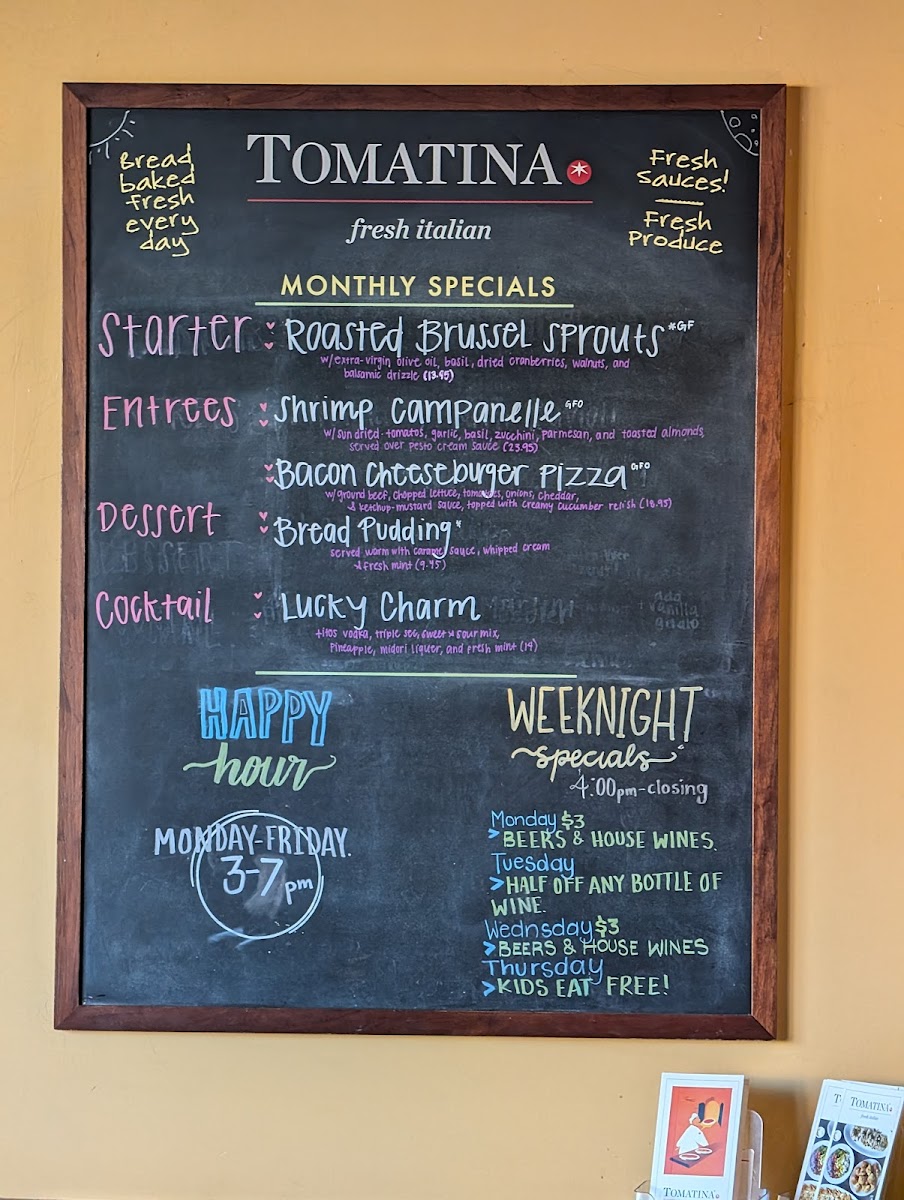 Bread
baked
fresh
every
day
TOMATINA
fresh italian
Fresh
Sauces!
Fresh
Produce
MONTHLY SPECIALS
Starter
Roasted Brussel Sprouts*GF
w/extra-virgin olive oil, basil, dried cranberries, walnuts, and
balsamic drizzle (13.95)
Entrees
Shrimp Campanelle GFO
w/sun dried-tomatos, garlic, basil, zucchini, parmesan, and toasted almonds,
served over pesto cream sauce (23.95)
Bacon Cheeseburger Pizza GFO
w/ground beef, chopped lettuce, tomatoes, onions, cheddar,
& ketchup-mustard sauce, topped with creamy cucumber relish (18.95)
Dessert
Bread Pudding*
served warm with caramel sauce, whipped cream
& fresh mint (9.45)
Cocktail
Lucky Charm
titos vodka, triple sec, sweet & sour mix,
pineapple, midori liquer, and fresh mint (14)
Add
vanilla
gelato
HAPPY
hour
MONDAY-FRIDAY.
3-7pm
WEEKNIGHT
specials
4:00pm-closing
Monday $3
>BEERS & HOUSE WINES.
Tuesday
>HALF OFF ANY BOTTLE OF
WINE.
Wednsday $3
>BEERS & HOUSE WINES
Thursday
>KIDS EAT FREE!
TOMATINA
TOMATINA
fresh italian